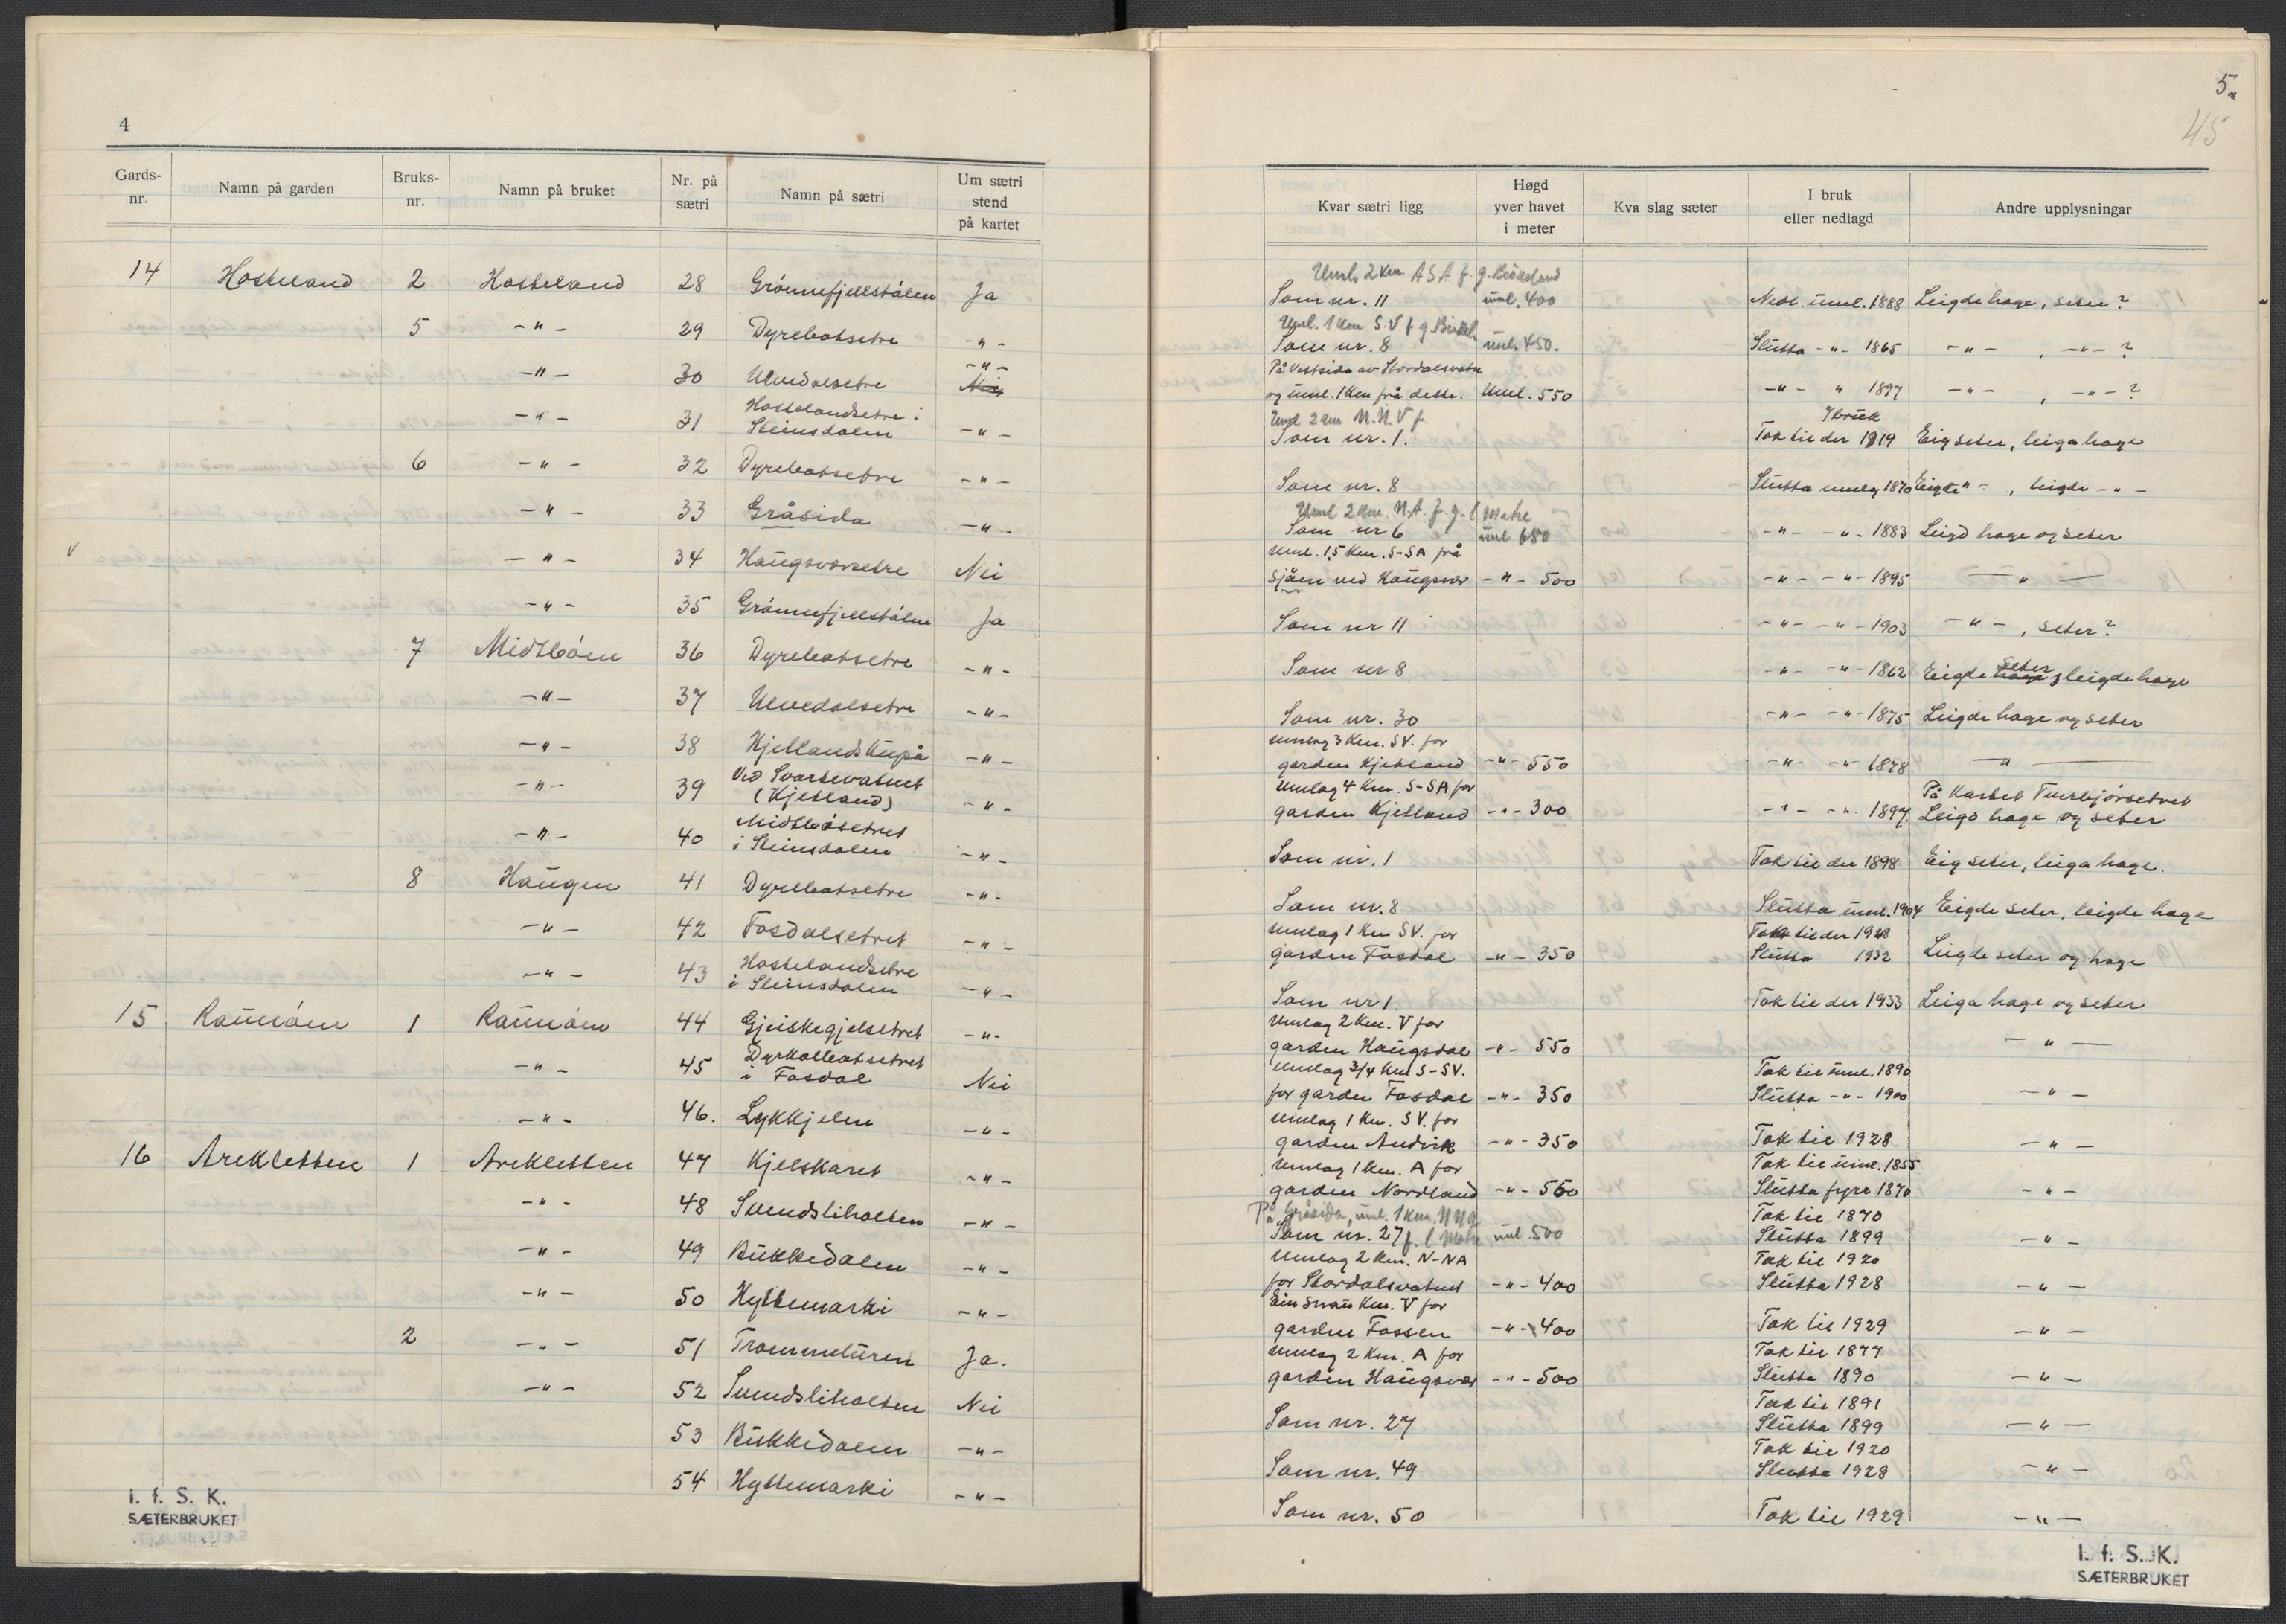 4
Gards-nr. Namn på garden Bruks-nr. Namn på bruket Nr. på sætri Namn på sætri Um sætri stend på kartet
14 Hosteland 2 Hosteland 28 Grønnefjellstølen Ja
5 -"- 29 Dyrebotsetre -"-
-"- 30 Ulvedalsetre -"- Nei
-"- 31 Hostelandsetre i Steinsdalen -"-
6 -"- 32 Dyrebotsetre -"-
-"- 33 Gråsida -"-
v -"- 34 Haugsværsetre Nei
-"- 35 Grønnefjellstølen Ja
7 Midtbøen 36 Dyrebotsetre -"-
-"- 37 Ulvedalsetre -"-
-"- 38 Kjetlandskupå -"-
-"- 39 Ved Svartevatnet (Kjetland) -"-
-"- 40 Midtbøsetret i Steinsdalen -"-
8 Haugen 41 Dyrebotsetre -"-
-"- 42 Fosdalsetret -"-
-"- 43 Hostelandsetre i Steinsdalen -"-
15 Raunøen 1 Raunøen 44 Gjeiskegjelsetret -"-
-"- 45 Dyrkolbotsetret i Fosdal Nei
-"- 46. Lykkjelen -"-
16 Arekletten 1 Arekletten 47 Kjelskaret -"-
-"- 48 Svendsliholten -"-
-"- 49 Bukkedalen -"-
-"- 50 Hyttemarki -"-
2 -"- 51 Trommeturen Ja.
-"- 52 Svendsliholten Nei
53 Bukkedalen -"-
54 Hyttemarki -"-
I. f. S. K.
SÆTERBRUKET
5.
45
Kvar sætri ligg Høgd yver havet i meter Kva slag sæter I bruk eller nedlagd Andre upplysningar
Uml. 2 km ASA f. g. Birkeland
Som nr. 11 uml. 400 Nedl. uml. 1888 Leigde hage, seter?
Uml. 1 km S.V f g Birkel.
Som nr. 8 uml. 450. Slutta -"- 1865 -"- , -"- ?
På Vestsida av Stordalsvatn
og uml. 1 km frå dette. Uml. 550 -"- " 1897 -"- , -"- ?
Uml 2 km N.N.V f I bruk
Som nr. 1. Tok til der 1919 Eig seter, leiga hage
Som nr. 8 Slutta umlag 1870 Eigde -"- , leigde -"-
Uml 2 km N.A. f. g. Matre
Som nr 6 uml 680 -"- -"- 1883 Leigd hage og seter
Uml. 1,5 km. S-SA frå
sjøen ved Haugsvær -"- 500 -"- -"- 1895 -"-
Som nr 11 -"- -"- 1903 -"- , seter?
Som nr 8 -"- -"- 1862 Eigde hage seter, leigde hage
Som nr. 30 -"- -"- 1875 Leigde hage og seter
umlag 3 km. SV. for
garden Kjetland -"- 550 -"- -"- 1878 -"-
Umlag 4 km. S-SA for På kartet Turbjørsetret
garden Kjetland -"- 300 -"- -"- 1897. Leigd hage og seter
Som nr. 1 Tok til der 1898 Eig seter, leiga hage.
Som nr. 8 Slutta uml. 1904 Eigde seter, leigde hage
Umlag 1 km SV. for Tok til der 1928
garden Fosdal -"- 350 Slutta 1932 Leigde seter og hage
Som nr 1 Tok til der 1933 Leiga hage og seter
Umlag 2 km. V for
garden Haugsdal -"- 550 -"-
Umlag 3/4 km S-SV. Tok til uml. 1890
for garden Fosdal -"- 350 Slutta -"- 1900 -"-
Umlag 1 km. SV. for
garden Andvik -"- 350 Tok til 1928 -"-
Umlag 1 km. A for Tok til uml. 1855
garden Nordland -"- 550 Slutta fyrr 1870 -"-
På Gråsida, uml. 1 km. NNA Tok til 1870
Som nr. 27 f. Matre uml. 500 Slutta 1899 -"-
Umlag 2 km. N-NA Tok til 1920
for Stordalsvatnet -"- 400 Slutta 1928 -"-
Ein snau km. V for
garden Fossen -"- 400 Tok til 1929 -"-
Umlag 2 km. A for Tok til 1877
garden Haugsvær -"- 500 Slutta 1890 -"-
Tok til 1891
Som nr. 27 Slutta 1899 -"-
Tok til 1920
Som nr. 49 Slutta 1928 -"-
Som nr. 50 Tok til 1929 -"-
I. f. S. K.
SÆTERBRUKET